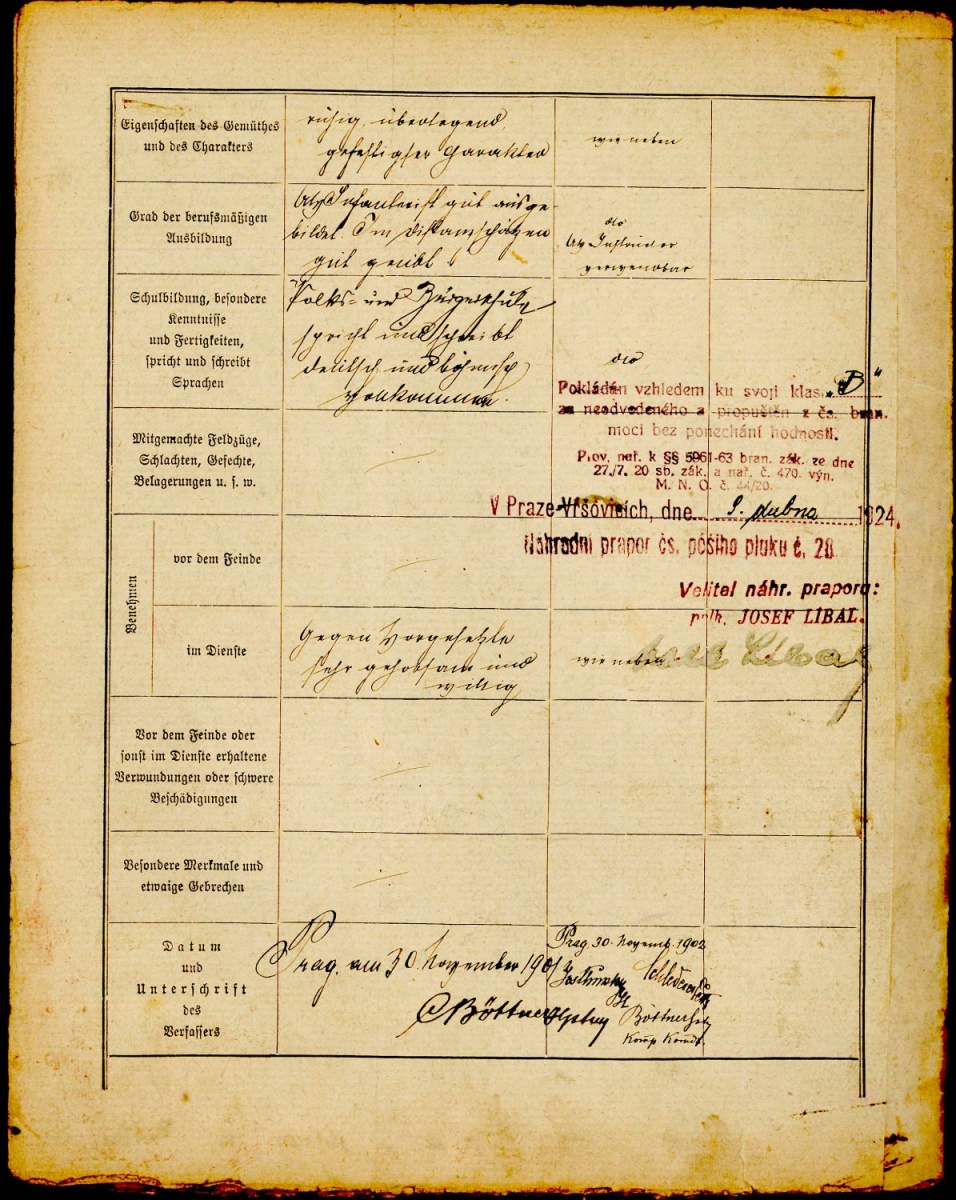 Eigenschaften des Gemüthes
und des Charakters
ruhig, überlegend,
gefestigter Charakter
wie neben
Grad der berufsmäßigen
Ausbildung
Als Infanterist gut ausge-
bildet. Im Distanzschätzen
gut geübt
dto
Als Instruktor
verwendbar
Schulbildung, besondere
Kenntnisse
und Fertigkeiten,
spricht und schreibt
Sprachen
Volks- und Bürgerschule
spricht und schreibt
deutsch und böhmisch
vollkommen.
dto
Pokládán vzhledem ku svoji klas. „B“
za neodvedeného a propuštěn z čs. bran.
moci bez ponechání hodnosti.
Prov. nař. k §§ 61-63 bran. zák. ze dne
27./7. 20 sb. zák. a nař. č. 470. výn.
M. N. O. č. 44/20.
V Praze-Vršovicích, dne 9. dubna 1924.
Náhradní prapor čs. pěšího pluku č. 28
Velitel náhr. praporu:
pplk. JOSEF LÍBAL.
Mitgemachte Feldzüge,
Schlachten, Gefechte,
Belagerungen u. s. w.
Benehmen
vor dem Feinde
im Dienste
Gegen Vorgesetzte
sehr gehorsam und
willig
wie neben
Vor dem Feinde oder
sonst im Dienste erhaltene
Verwundungen oder schwere
Beschädigungen
Besondere Merkmale und
etwaige Gebrechen
Datum
und
Unterschrift
des
Verfassers
Prag, am 30. November 1901
Böttner Hptm
Prag, 30. Novemb. 1902
Böttner
Komp Komdt.